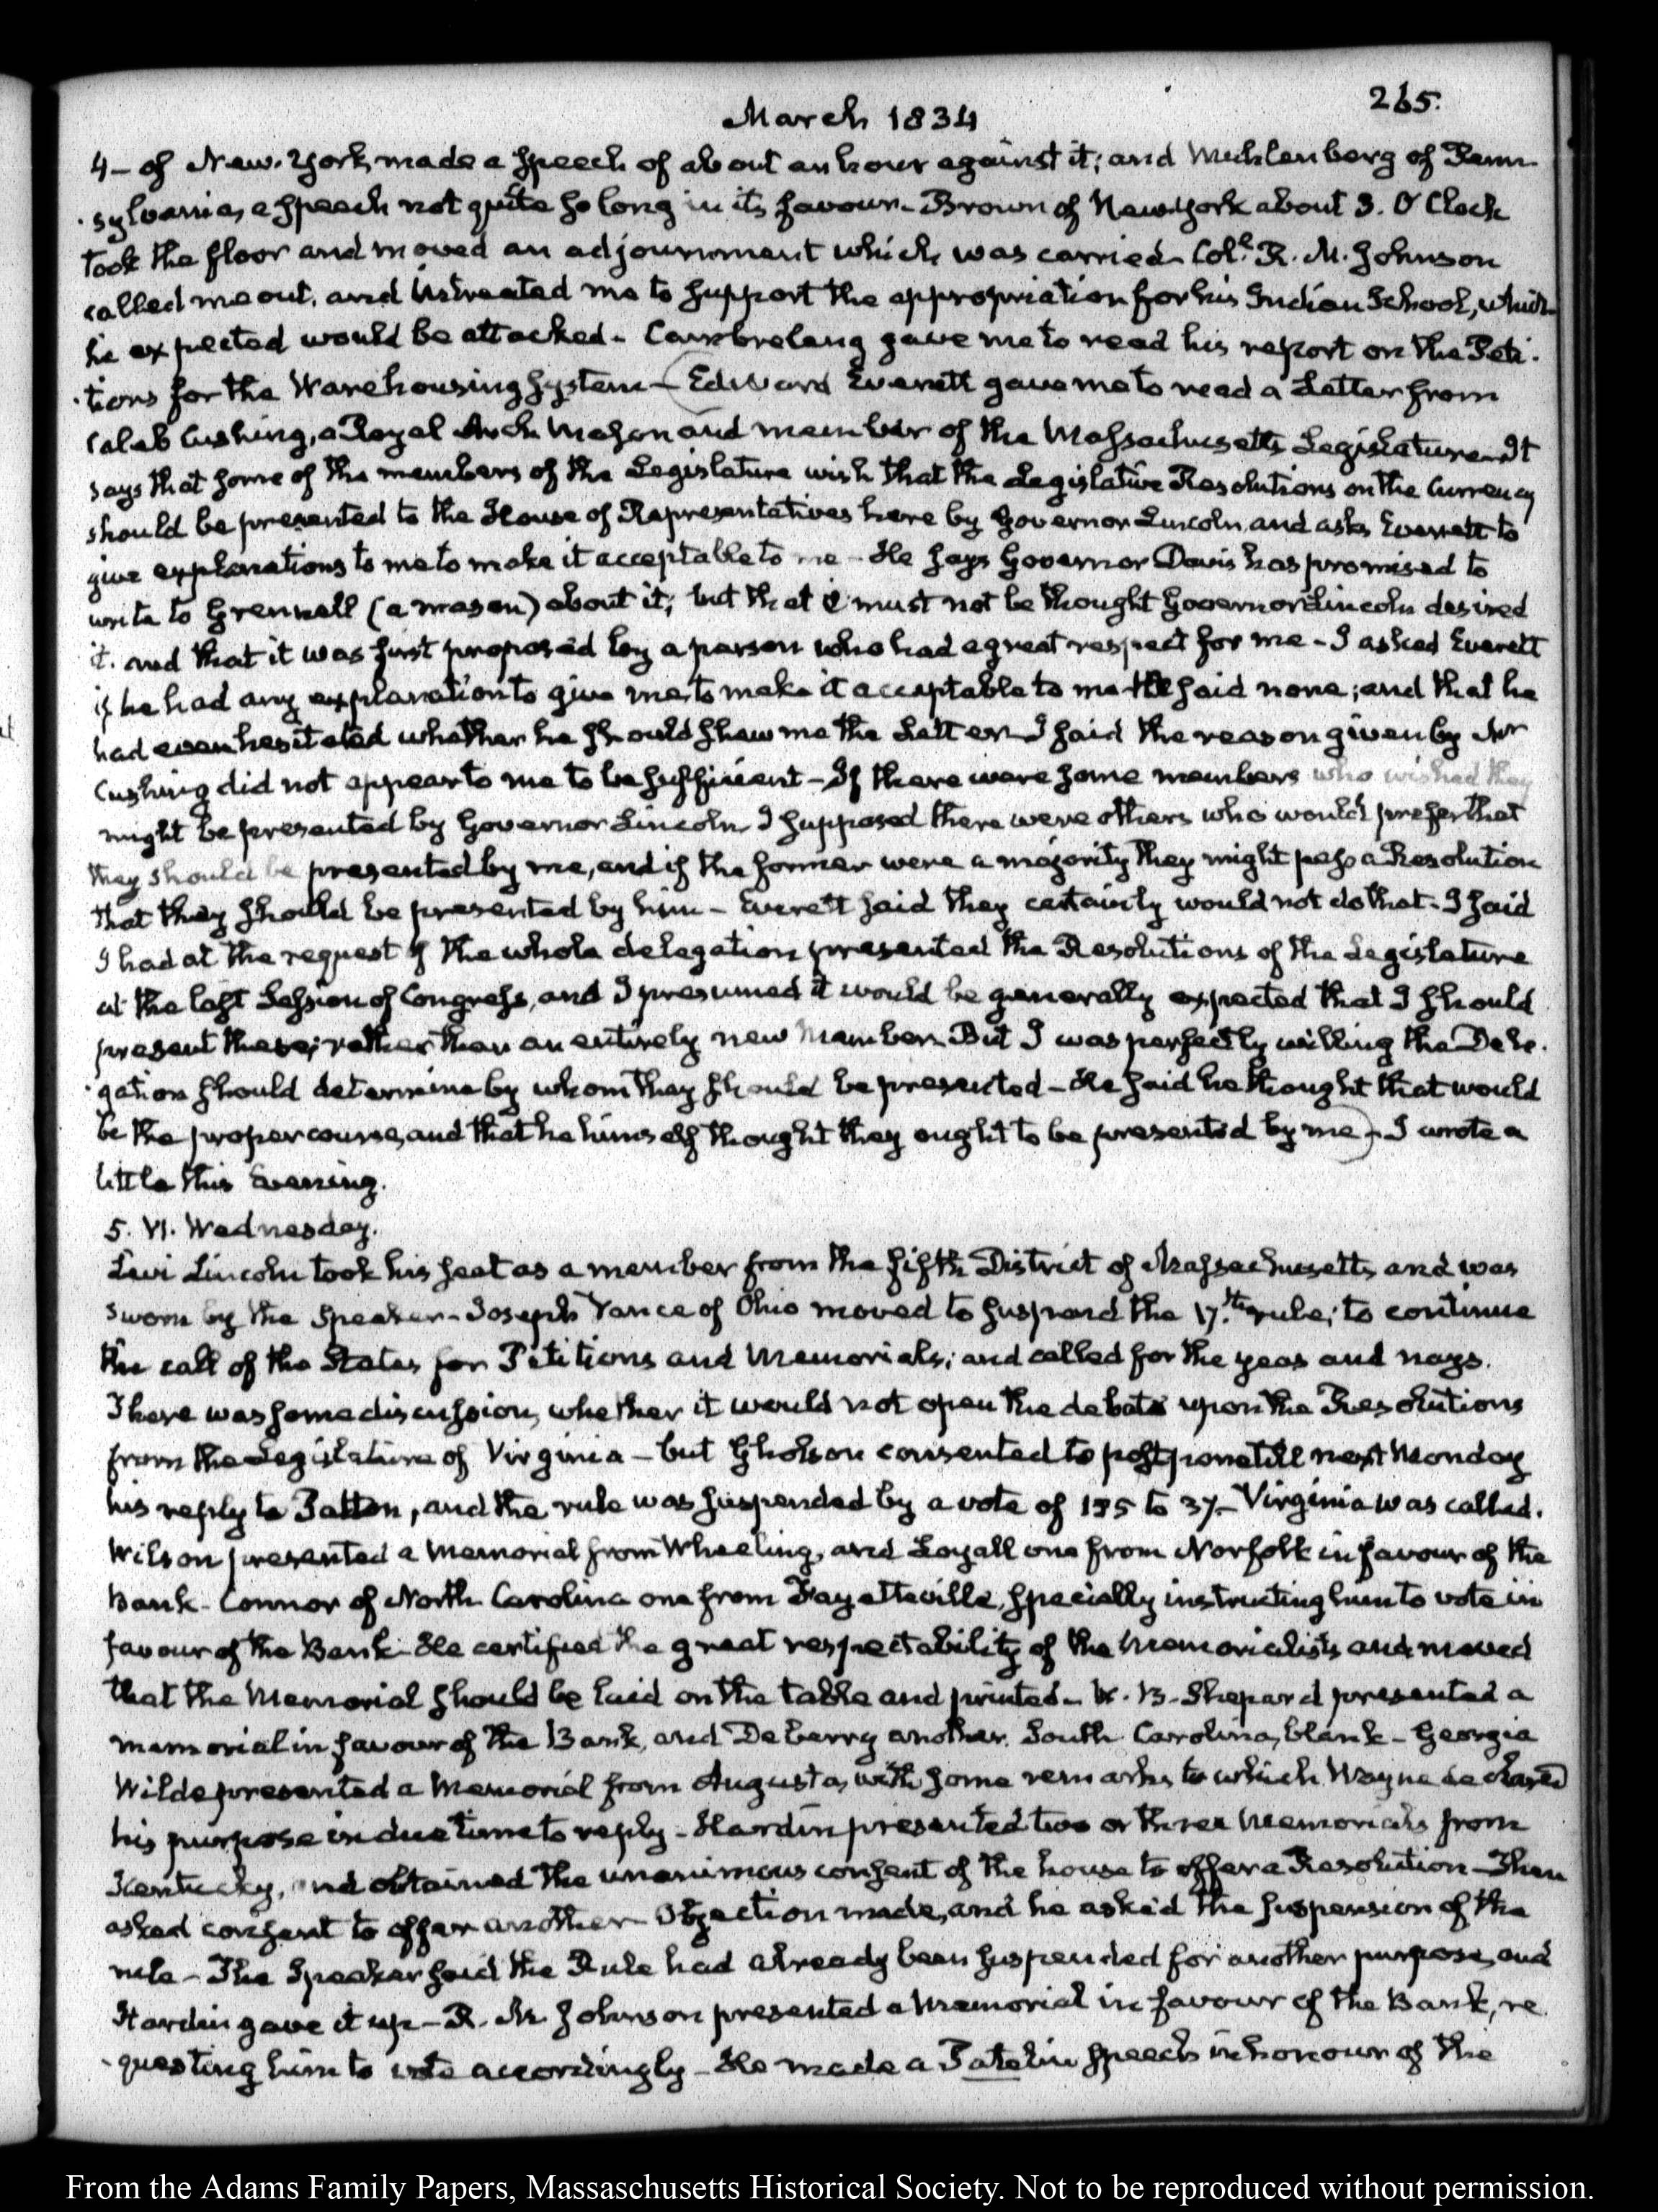 265.
March 1834
4 – of New-York made a speech of about an hour against it; and Muhlenberg of Penn-
sylvania, a speech not quite so long in its favour. Brown of New-York about 3. O'Clock
took the floor and moved an adjournment which was carried – Col.l R. M. Johnson
called me out, and intreated me to support the appropriation for his Indian School, which
he expected would be attacked – Cambreleng gave me to read his report on the Peti-
tions for the Warehousing System – (Edward Everett gave me to read a Letter from
Caleb Cushing, a Royal Arch Mason and member of the Massachusetts Legislature – It
says that some of the members of the Legislature wish that the Legislative Resolutions on the Currency
should be presented to the House of Representatives here by Governor Lincoln, and asks Everett to
give explanations to me to make it acceptable to me – He says Governor Davis has promised to
write to Grennell (a mason) about it; but that it must not be thought Governor Lincoln desired
it. and that it was first proposed by a person who had a great respect for me – I asked Everett
if he had any explanation to give me, to make it acceptable to me – He said none; and that he
had even hesitated whether he should shew me the Letter – I said the reason given by Mr
Cushing did not appear to me to be sufficient – If there were some members who wished they
might be presented by Governor Lincoln I supposed there were others who would prefer that
they should be presented by me, and if the former were a majority they might pass a Resolution
that they should be presented by him – Everett said they certainly would not do that. I said
I had at the request of the whole delegation presented the Resolutions of the Legislature
at the last Session of Congress, and I presumed it would be generally expected that I should
present these; rather than an entirely new Member. But I was perfectly willing the Dele-
gation should determine by whom they should be presented – He said he thought that would
be the proper course, and that he himself thought they ought to be presented by me) – I wrote a
little this Evening.
5. VI. Wednesday.
Levi Lincoln took his seat as a member from the fifth District of Massachusetts and was
sworn by the Speaker – Joseph Vance of Ohio moved to suspend the 17.th rule; to continue
the call of the States for Petitions and Memorials; and called for the yeas and nays.
There was some discussion, whether it would not open the debate upon the Resolutions
from the Legislature of Virginia – but Gholson consented to postpone till next Monday
his reply to Patton, and the rule was suspended by a vote of 135 to 37 – Virginia was called.
Wilson presented a Memorial from Wheeling, and Loyall one from Norfolk in favour of the
Bank – Connor of North Carolina one from Fayetteville, specially instructing him to vote in
favour of the Bank – He certified the great respectability of the Memorialists and moved
that the Memorial should be laid on the table and printed – W. B. Shepard presented a
memorial in favour of the Bank, and Deberry another. South Carolina, blank – Georgia
Wilde presented a Memorial from Augusta, with some remarks to which Wayne declared
his purpose in due time to reply – Hardin presented two or three Memorials from
Kentucky, and obtained the unanimous consent of the house to offer a Resolution – Then
asked consent to offer another – Objection made, and he asked the suspension of the
rule – The Speaker said the Rule had already been suspended for another purpose, and
Hardin gave it up – R. M. Johnson presented a Memorial in favour of the Bank, re-
questing him to vote accordingly – He made a Patelin speech in honour of the
From the Adams Family Papers, Massachusetts Historical Society. Not to be reproduced without permission.